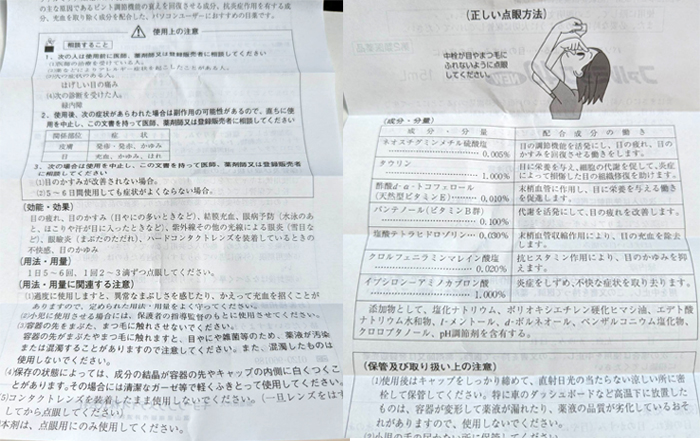 主な原因であるピント調節機能の衰えを回復させる成分、抗炎症作用を有する成
分、充血を取り除く成分を配合した、パソコンユーザーにおすすめの目薬です。
使用上の注意
相談すること
1、次の人は使用前に医師、薬剤師又は登録販売者に相談してください
(1)医師の治療を受けている人。
(2)薬などによりアレルギー症状を起こしたことがある人。
(3)次の症状のある人。
はげしい目の痛み
(4)次の診断を受けた人。
緑内障
2、使用後、次の症状があらわれた場合は副作用の可能性があるので、直ちに使
用を中止し、この文書を持って医師、薬剤師又は登録販売者に相談してください
関係部位 症 状
皮膚 発疹・発赤、かゆみ
目 充血、かゆみ、はれ
3、次の場合は使用を中止し、この文書を持って医師、薬剤師又は登録販売者
に相談してください
(1)目のかすみが改善されない場合。
(2)5～6日間使用しても症状がよくならない場合。
(効能・効果)
目の疲れ、目のかすみ(目やにの多いときなど)、結膜充血、眼病予防(水泳のあ
と、ほこりや汗が目に入ったときなど)、紫外線その他の光線による眼炎(雪目な
ど)、眼瞼炎(まぶたのただれ)、ハードコンタクトレンズを装着しているときの
不快感、目のかゆみ
(用法・用量)
1日5～6回、1回2～3滴ずつ点眼してください。
(用法・用量に関連する注意)
(1)過度に使用しますと、異常なまぶしさを感じたり、かえって充血を招くことが
ありますので、定められた用法・用量をよく守ってください。
(2)小児に使用させる場合には、保護者の指導監督のもとに使用させてください。
(3)容器の先をまぶた、まつ毛に触れさせないでください。
容器の先がまぶたやまつ毛に触れますと、目やにや雑菌等のため、薬液が汚染
または混濁することがありますので注意してください。また、混濁したものは
使用しないでください。
(4)保存の状態によっては、成分の結晶が容器の先やキャップの内側に白くつくこ
とがあります。その場合には清潔なガーゼ等で軽くふきとって使用してください。
(5)コンタクトレンズを装着したまま使用しないでください。(一旦レンズをはず
してから点眼してください。)
本剤は、点眼用にのみ使用してください。
(正しい点眼方法)
中栓が目やまつ毛に
ふれないように点眼
してください。
(成分・分量)
成 分 ・ 分 量 配 合 成 分 の 働 き
ネオスチグミンメチル硫酸塩 0.005% 目の調節機能を活発にし、目の疲れ、目の
かすみを回復させる働きをします。
タウリン 1.000% 目に栄養を与え、細胞の代謝を促して、炎症
によって相傷した目の組織修復を助けます。
酢酸d-α-トコフェロール
(天然型ビタミンE) 0.010% 末梢血管に作用し、目に栄養を与える働き
を促進します。
パンテノール(ビタミンB群) 0.100% 代謝を活発にして、目の疲れを改善します。
塩酸テトラヒドロゾリン 0.030% 末梢血管収縮作用により、目の充血を除去
します。
クロルフェニラミンマレイン酸塩 0.020% 抗ヒスタミン作用により、目のかゆみを抑
えます。
イプシロン-アミノカプロン酸 1.000% 炎症をしずめ、不快な症状を取り去ります。
添加物として、塩化ナトリウム、ポリオキシエチレン硬化ヒマシ油、エデト酸
ナトリウム水和物、l-メントール、d-ボルネオール、ベンザルコニウム塩化物、
クロロブタノール、pH調節剤を含有する。
(保管及び取り扱い上の注意)
(1)使用後はキャップをしっかり締めて、直射日光の当たらない涼しい所に密
栓して保管してください。特に車のダッシュボードなど高温下に放置した
ものは、容器が変形して薬液が漏れたり、薬液の品質が劣化しているおそ
れがありますので、使用しないでください。
(2)小児の手の届かない所に保管してください。